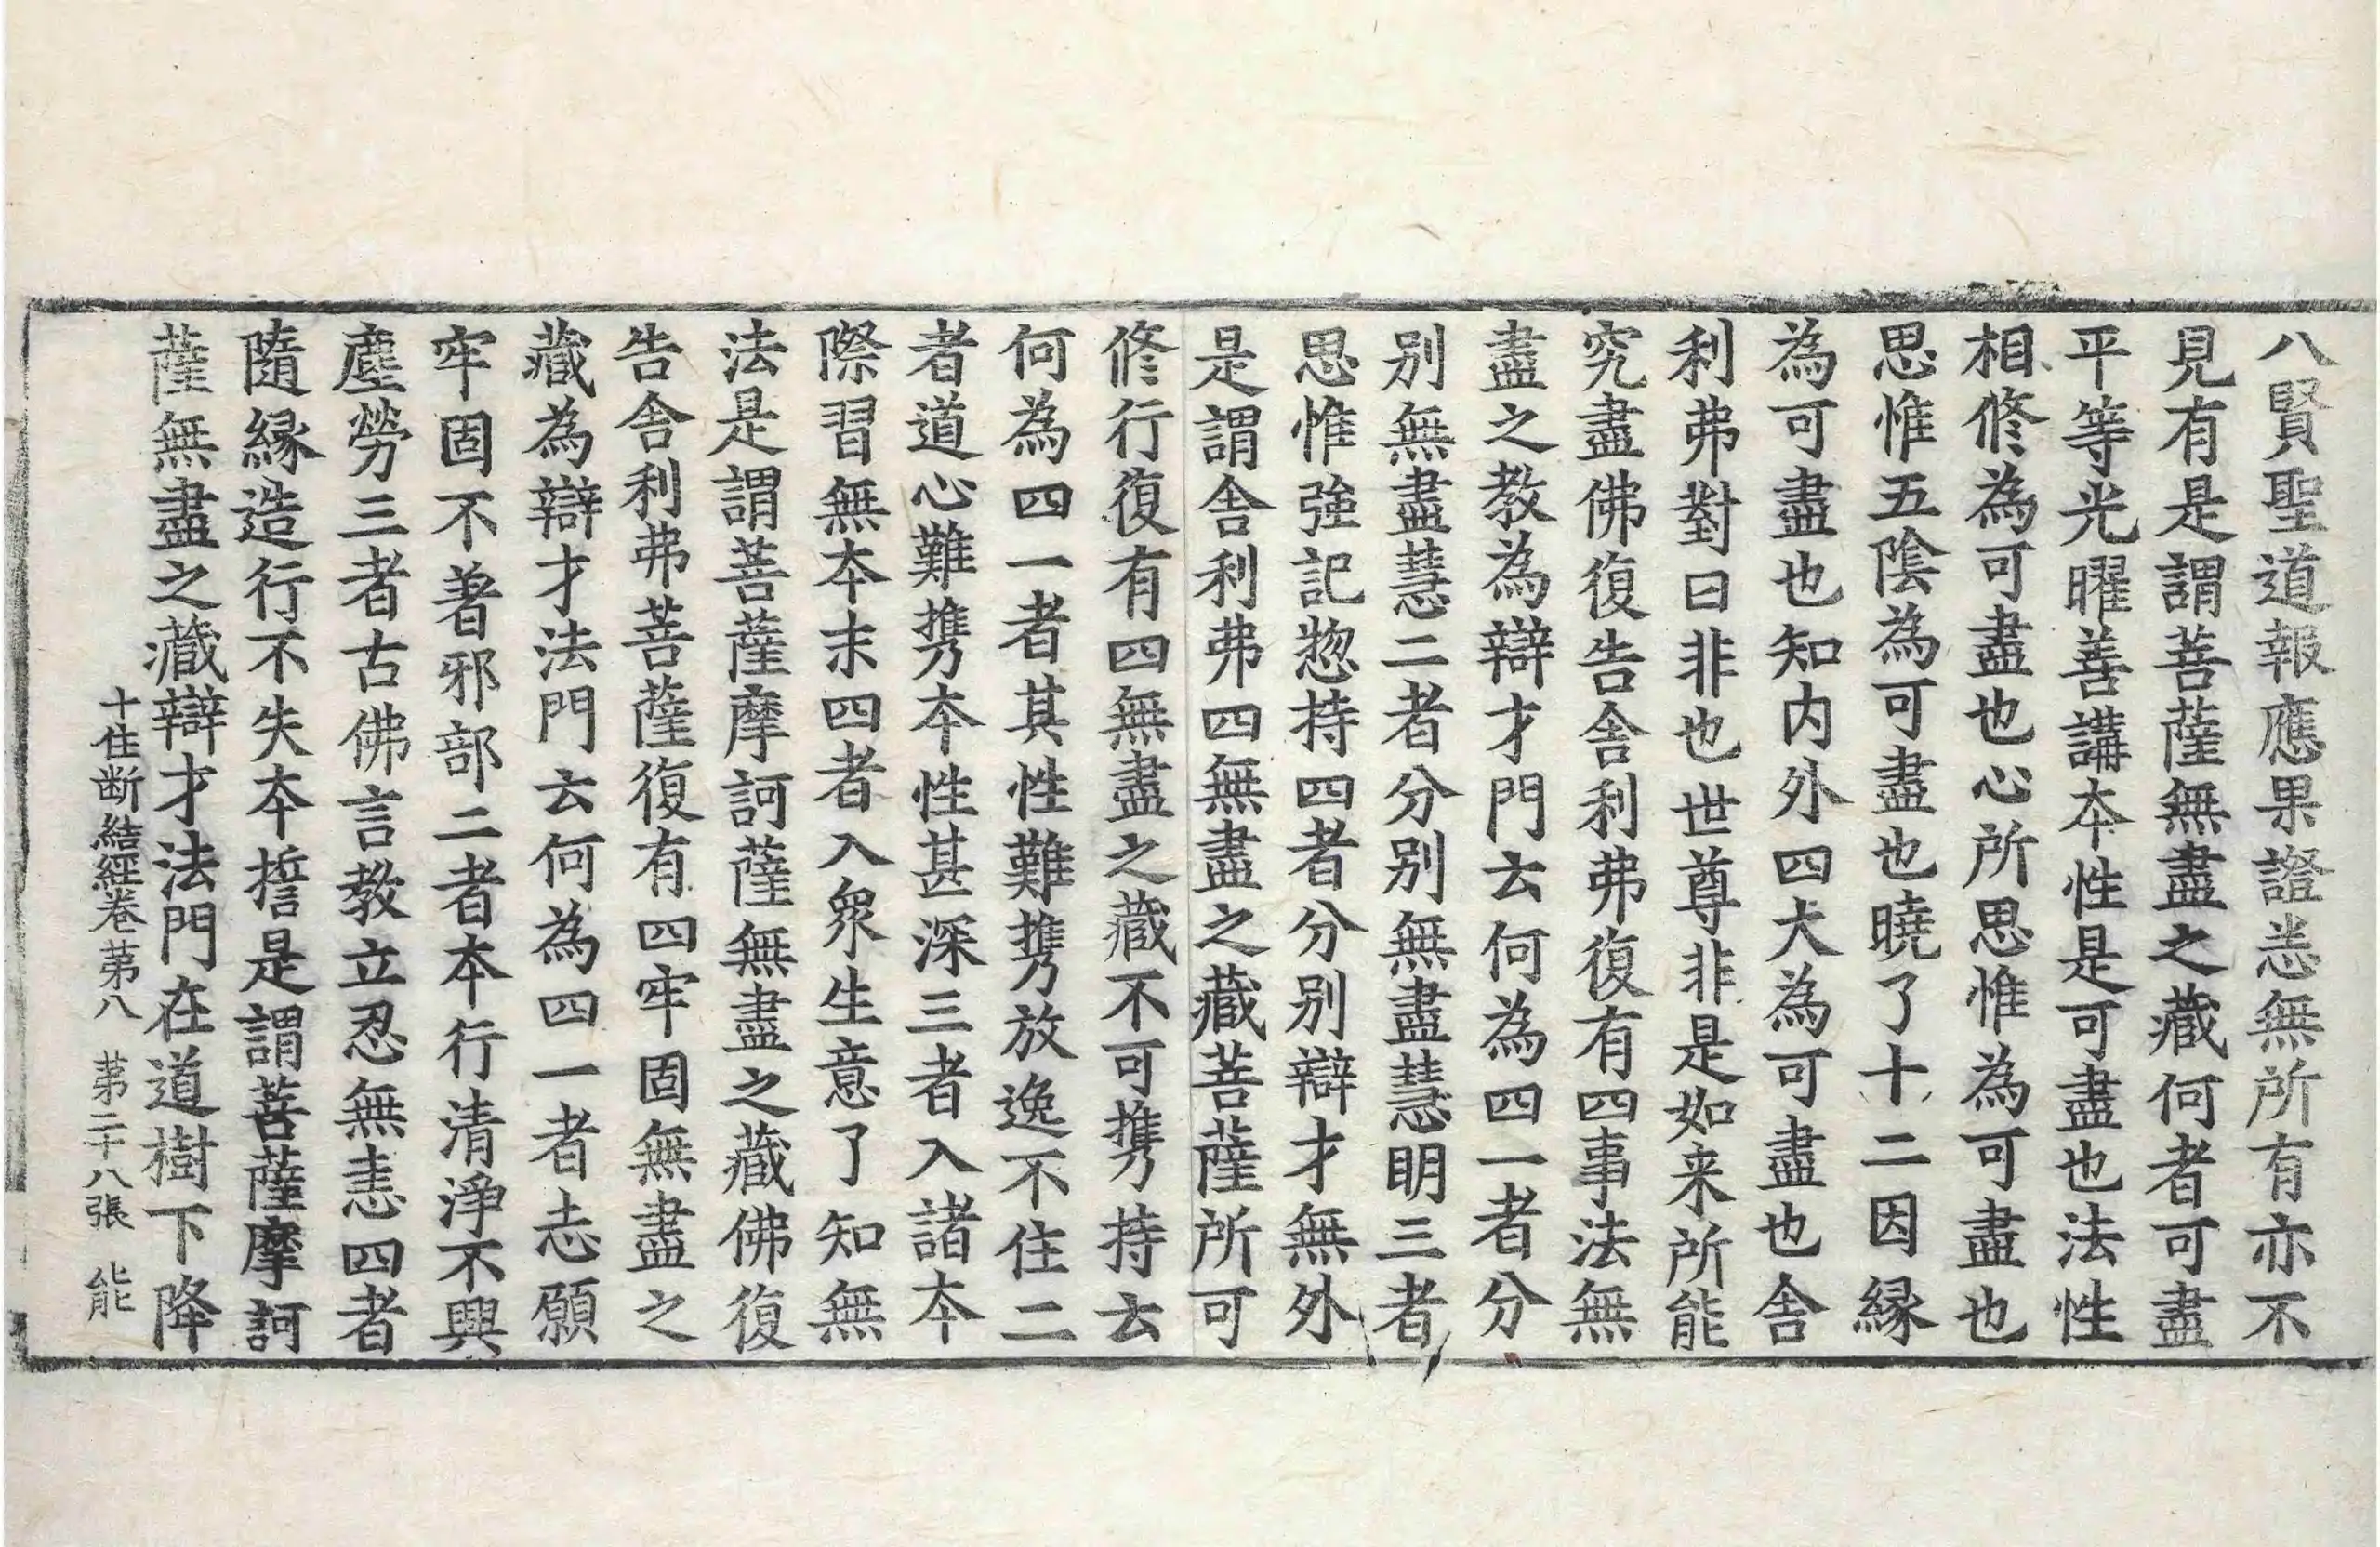 八賢聖道報應果證悉無所有亦不
見有是謂菩薩無盡之藏何者可盡
平等光曜善講本性是可盡也法性
相修為可盡也心所思惟為可盡也
思惟五陰為可盡也曉了十二因緣
為可盡也知内外四大為可盡也舍
利弗對曰非也世尊非是如来所能
究盡佛復告舍利弗復有四事法無
盡之教為辯才門云何為四一者分
別無盡慧二者分別無盡慧明三者
思惟強記惣持四者分別辯才無外
是謂舍利弗四無盡之藏菩薩所可
修行復有四無盡之藏不可攜持云
何為四一者其性難攜放逸不住二
者道心難攜本性甚深三者入諸本
際習無本末四者入衆生意了知無
法是謂菩薩摩訶薩無盡之藏佛復
告舍利弗菩薩復有四牢固無盡之
藏為辯才法門云何為四一者志願
牢固不著邪部二者本行清淨不興
塵勞三者古佛言教立忍無恚四者
隨緣造行不失本誓是謂菩薩摩訶
薩無盡之藏辯才法門在道樹下降
十住断結經卷第八　第二十八張　能